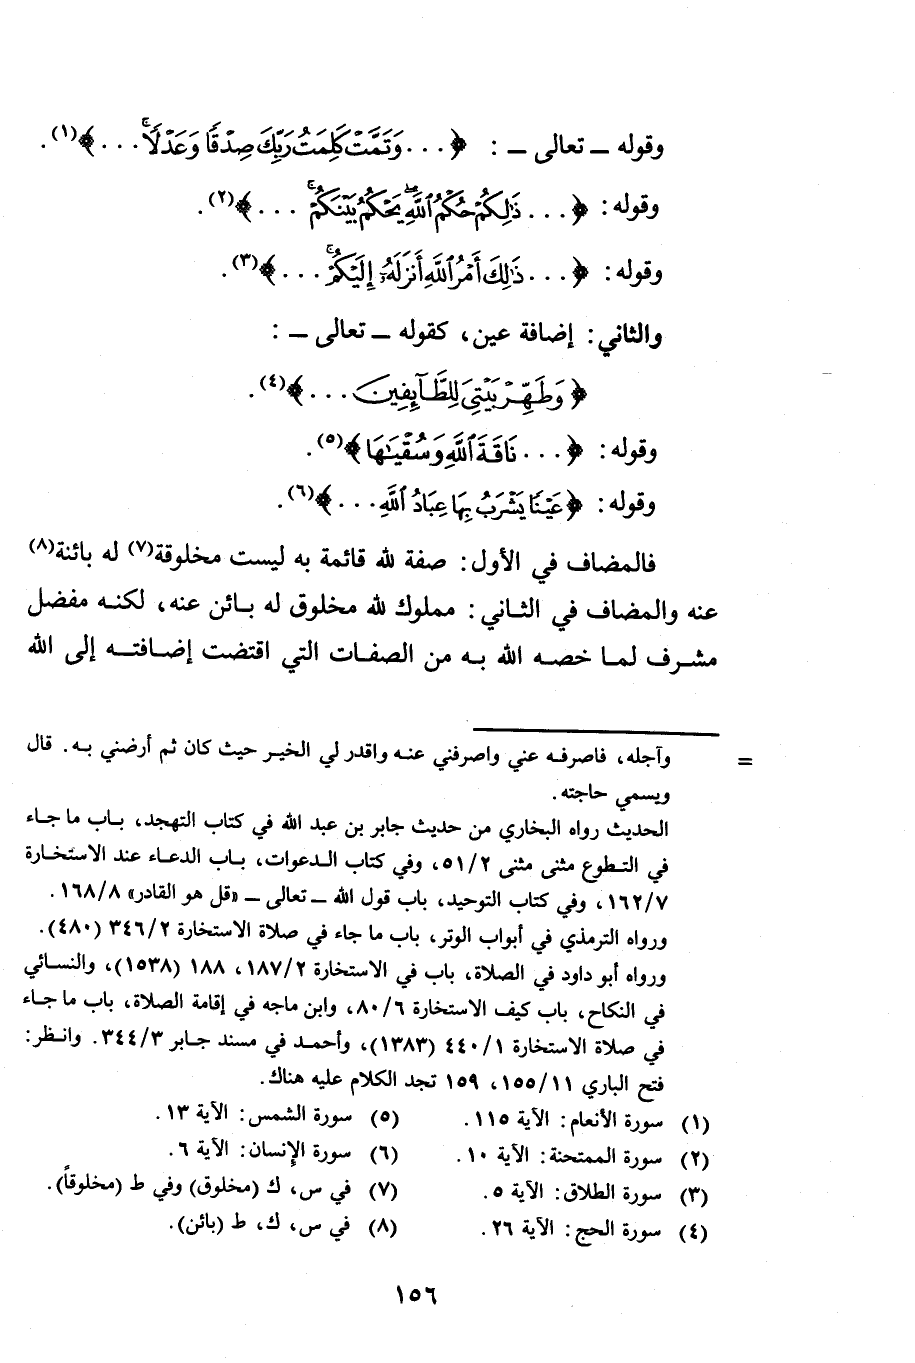 وقوله ــ تعالى ــ : ﴿ . . . وَتَمَّتْ كَلِمَتُ رَبِّكَ صِدْقًا وَعَدْلًا ۚ . . . ﴾(١).
وقوله: ﴿ . . . ذَٰلِكُمْ حُكْمُ اللَّهِ ۖ يَحْكُمُ بَيْنَكُمْ ۚ . . . ﴾(٢).
وقوله: ﴿ . . . ذَٰلِكَ أَمْرُ اللَّهِ أَنزَلَهُ إِلَيْكُمْ ۚ . . . ﴾(٣).
والثاني: إضافة عين، كقوله ــ تعالى ــ :
﴿ وَطَهِّرْ بَيْتِيَ لِلطَّائِفِينَ . . . ﴾(٤).
وقوله: ﴿ . . . نَاقَةَ اللَّهِ وَسُقْيَاهَا ﴾(٥).
وقوله: ﴿ عَيْنًا يَشْرَبُ بِهَا عِبَادُ اللَّهِ . . . ﴾(٦).
فالمضاف في الأول: صفة لله قائمة به ليست مخلوقة(٧) له بائنة(٨)
عنه والمضاف في الثاني: مملوك لله مخلوق له بائن عنه، لكنه مفضل
مشرف لما خصه الله به من الصفات التي اقتضت إضافته إلى الله
= وآجله، فاصرفه عني واصرفني عنه واقدر لي الخير حيث كان ثم أرضني به. قال
ويسمي حاجته.
الحديث رواه البخاري من حديث جابر بن عبد الله في كتاب التهجد، باب ما جاء
في التطوع مثنى مثنى ٥١/٢، وفي كتاب الدعوات، باب الدعاء عند الاستخارة
١٦٢/٧، وفي كتاب التوحيد، باب قول الله ــ تعالى ــ «قل هو القادر» ١٦٨/٨.
ورواه الترمذي في أبواب الوتر، باب ما جاء في صلاة الاستخارة ٣٤٦/٢ (٤٨٠).
ورواه أبو داود في الصلاة، باب في الاستخارة ١٨٧/٢، ١٨٨ (١٥٣٨)، والنسائي
في النكاح، باب كيف الاستخارة ٨٠/٦، وابن ماجه في إقامة الصلاة، باب ما جاء
في صلاة الاستخارة ٤٤٠/١ (١٣٨٣)، وأحمد في مسند جابر ٣٤٤/٣. وانظر:
فتح الباري ١٥٥/١١، ١٥٩ تجد الكلام عليه هناك.
(١) سورة الأنعام: الآية ١١٥.
(٢) سورة الممتحنة: الآية ١٠.
(٣) سورة الطلاق: الآية ٥.
(٤) سورة الحج: الآية ٢٦.
(٥) سورة الشمس: الآية ١٣.
(٦) سورة الإنسان: الآية ٦.
(٧) في س، ك (مخلوق) وفي ط (مخلوقاً).
(٨) في س، ك، ط (بائن).
١٥٦